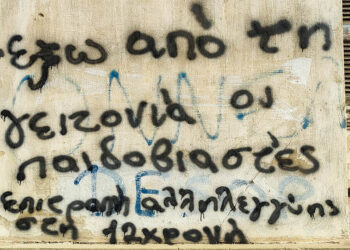 εξω από τη
γειτονιά οι
παιδοβιαστές
επιτροπή αλληλεγγύης
στη 12χρονη